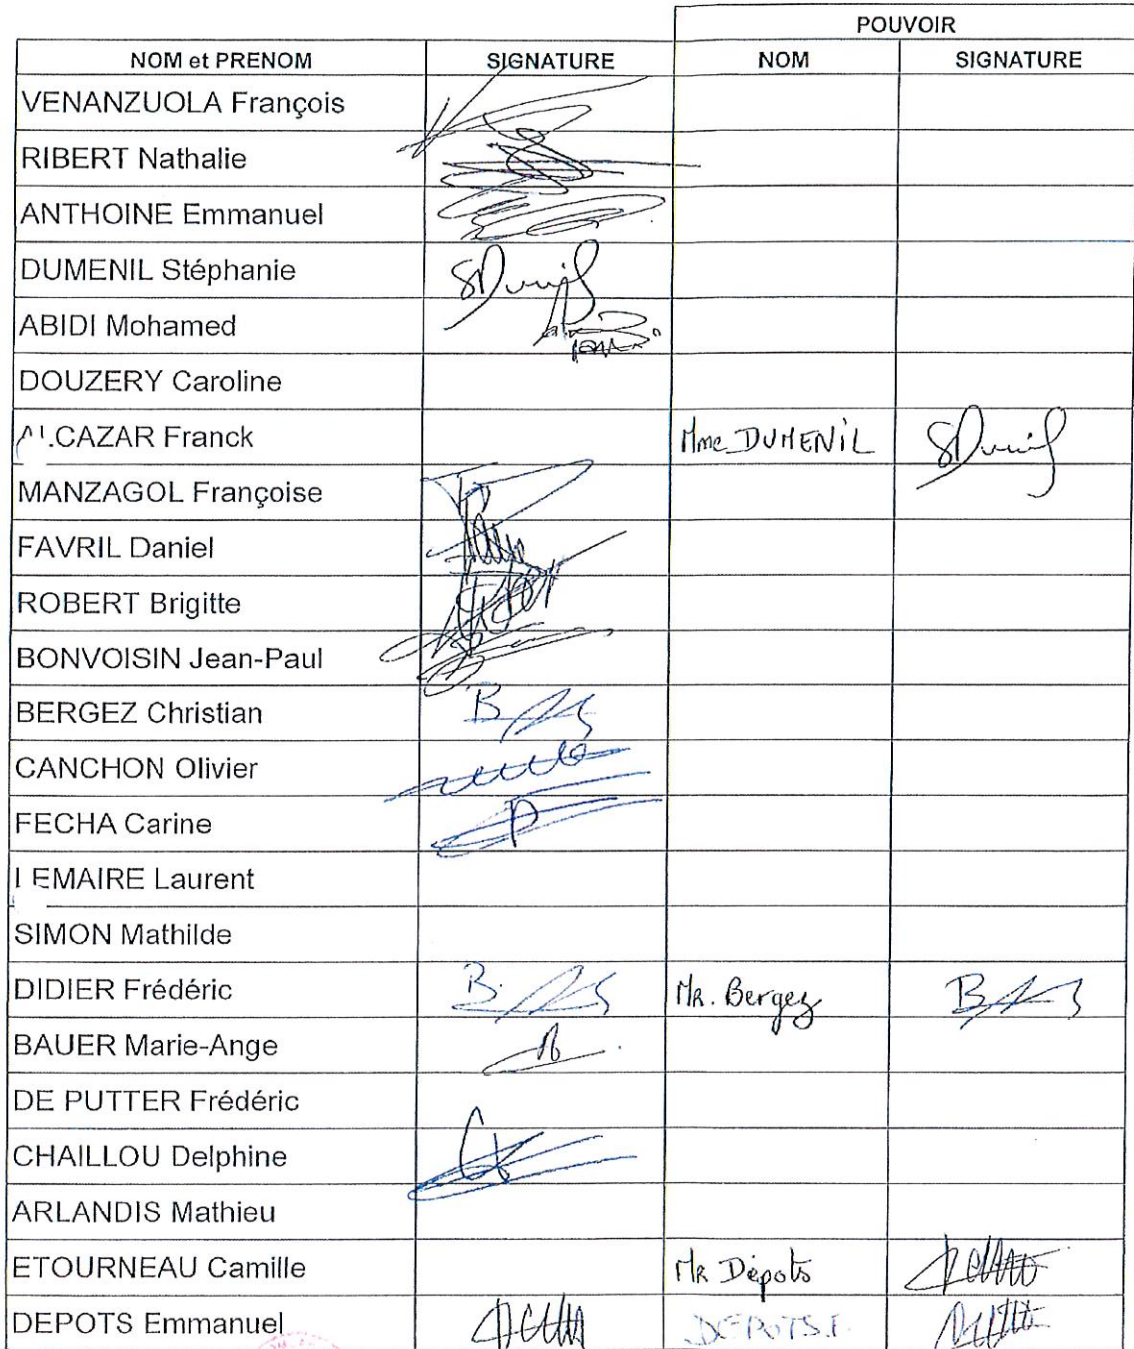 POUVOIR
NOM et PRENOM SIGNATURE NOM SIGNATURE
VENANZUOLA François
RIBERT Nathalie
ANTHOINE Emmanuel
DUMENIL Stéphanie SDumenil
ABIDI Mohamed
DOUZERY Caroline
ALCAZAR Franck Mme DUMENIL SDumenil
MANZAGOL Françoise
FAVRIL Daniel
ROBERT Brigitte
BONVOISIN Jean-Paul
BERGEZ Christian
CANCHON Olivier
FECHA Carine
LEMAIRE Laurent
SIMON Mathilde
DIDIER Frédéric MR. Bergez
BAUER Marie-Ange
DE PUTTER Frédéric
CHAILLOU Delphine
ARLANDIS Mathieu
ETOURNEAU Camille MR Dépots
DEPOTS Emmanuel DEPOTS.E